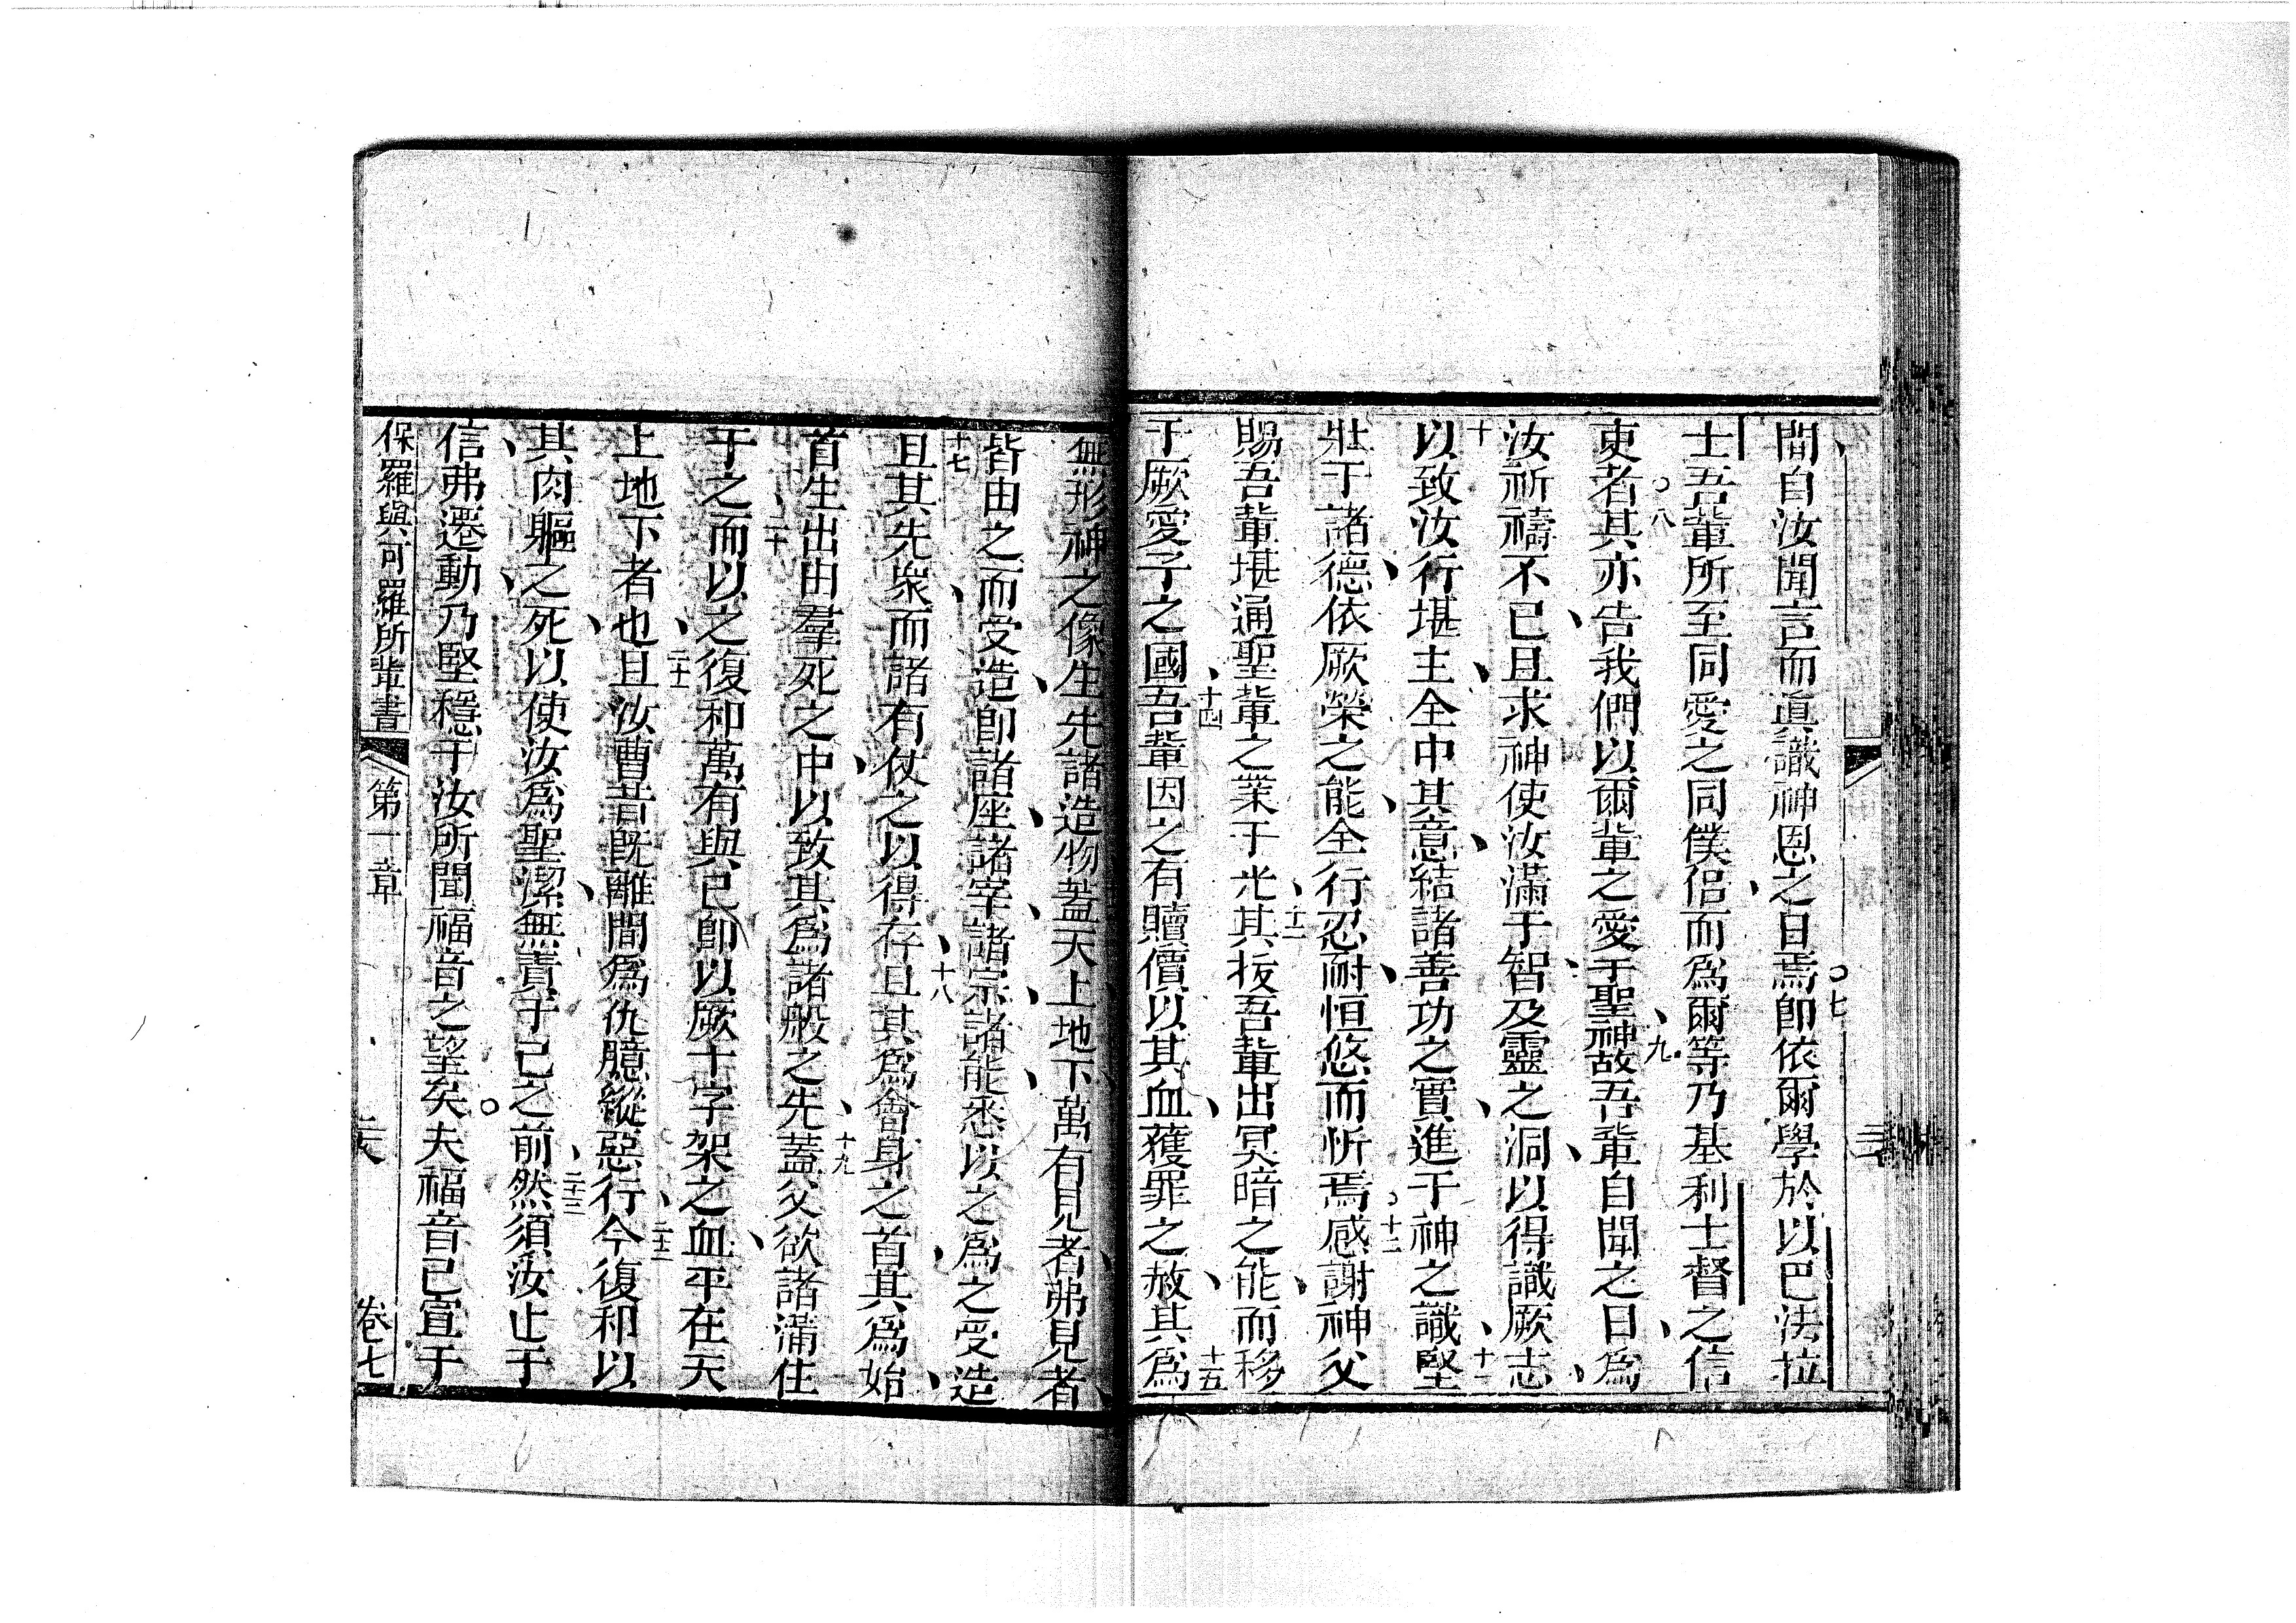 間自汝聞言而眞識神恩之日焉即依爾學於以巴法拉
士吾輩所至同愛之同僕侶而爲爾等乃基利士督之信
吏者其亦告我們以爾輩之愛于聖神故吾輩自聞之日爲
汝祈禱不已且求神使汝滿于智及靈之洞以得識厥志
以致汝行堪主全中其意結諸善功之實進于神之識堅
壯于諸德依厥榮之能全行忍耐恒悠而忻焉感謝神父
賜吾輩堪通聖輩之業于光其拔吾輩出冥暗之能而移
于厥愛子之國吾輩因之有贖價以其血獲罪之赦其爲
無形神之像生先諸造物蓋天上地下萬有見者弗見者
皆由之而受造即諸座諸宰諸宗諸能悉以之爲之受造
且其先衆而諸有仗之以得存且其爲會身之首其爲始
首生出由羣死之中以致其爲諸般之先蓋父欲諸滿住
于之而以之復和萬有與己即以厥十字架之血平在天
上地下者也且汝曹昔旣離間爲仇臆縱惡行今復和以
其肉軀之死以使汝爲聖潔無責于己之前然須汝止于
信弗遷動乃堅穩于汝所聞福音之望矣夫福音已宣于
保羅與可羅所輩書 第一章 卷七